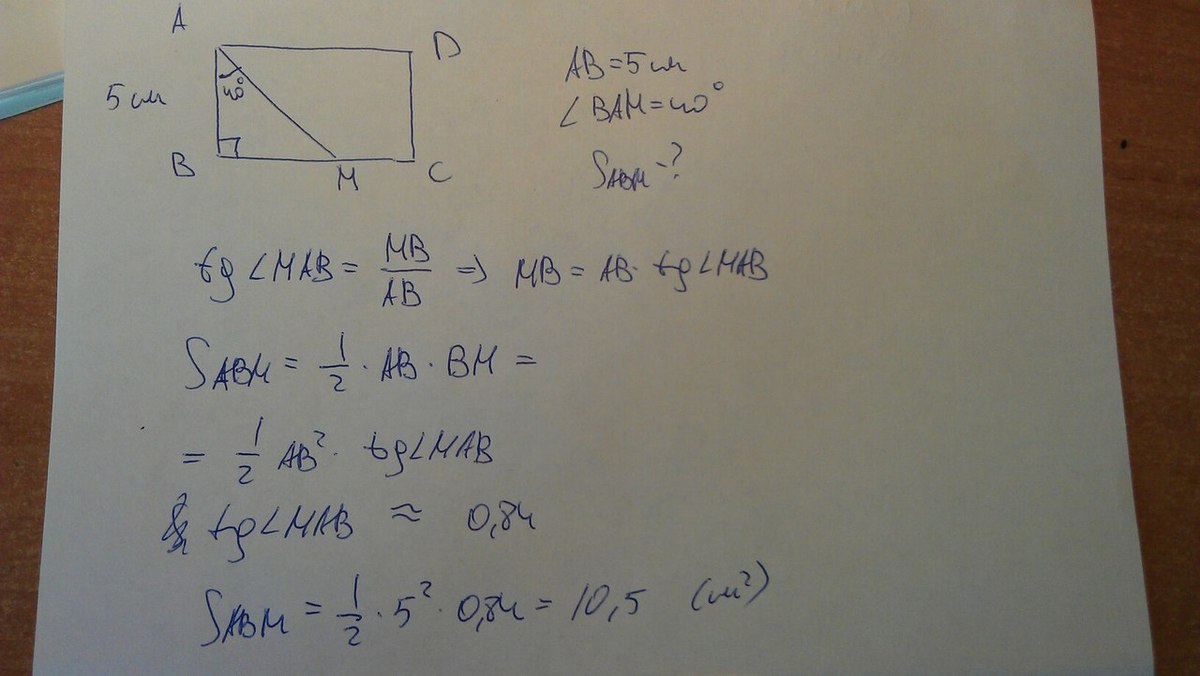 A
D
AB = 5 см
5 см
40°
∠ BAM = 40°
B
M
C
S ABM - ?
tg ∠MAB = MB/AB ⇒ MB = AB · tg ∠MAB
S ABM = 1/2 · AB · BM =
= 1/2 AB² · tg∠MAB
tg∠MAB ≈ 0,84
S ABM = 1/2 · 5² · 0,84 = 10,5 (см²)